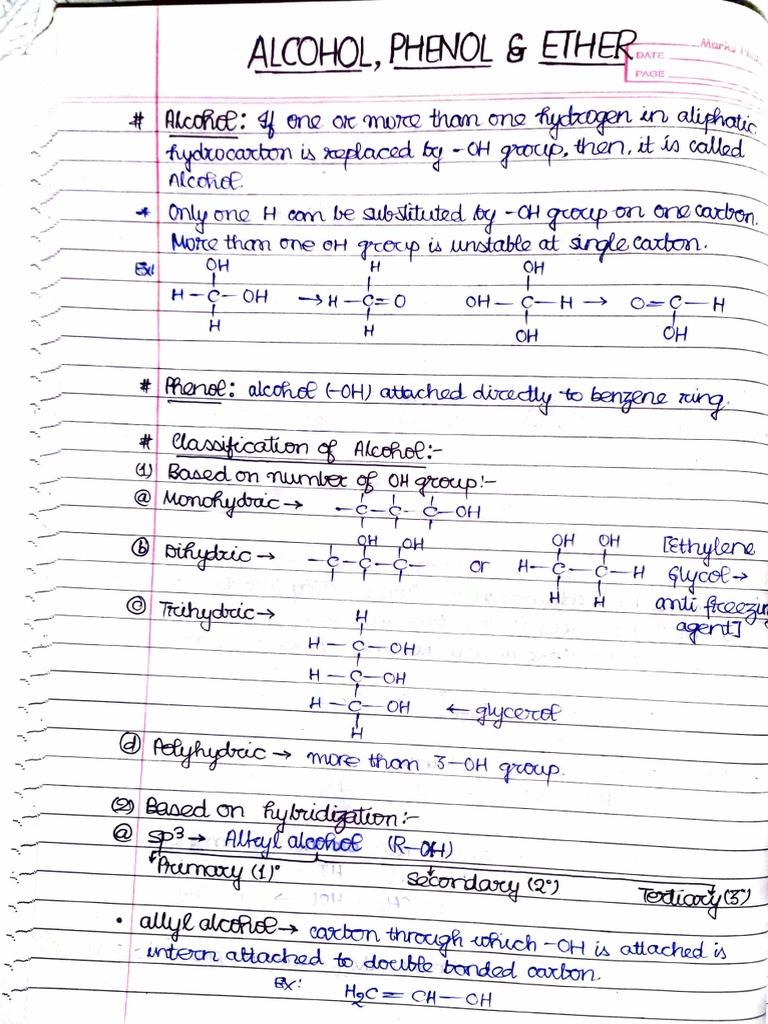 ALCOHOL, PHENOL & ETHER
DATE
PAGE
# Alcohol: If one or more than one hydrogen in aliphatic
hydrocarbon is replaced by -OH group, then, it is called
Alcohol.
* Only one H can be substituted by -OH group on one carbon.
More than one OH group is unstable at single carbon.
Ex:
OH H OH
H - C - OH → H - C = O OH - C - H → O = C - H
H H OH OH
# Phenol: alcohol (-OH) attached directly to benzene ring.
# Classification of Alcohol:-
(1) Based on number of OH group:-
(a) Monohydric → - C - C - C - OH
OH OH OH OH [Ethylene
(b) Dihydric → - C - C - C - or H - C - C - H Glycol →
H H anti freezin
agent]
(c) Trihydric → H
H - C - OH
H - C - OH
H - C - OH ← glycerol
H
(d) Polyhydric → more than 3-OH group.
(2) Based on hybridization:-
(a) sp3 → Alkyl alcohol (R-OH)
Primary (1)° Secondary (2°) Tertiary (3°)
• allyl alcohol → carbon through which -OH is attached is
intern attached to double bonded carbon.
Ex: H2C = CH - OH